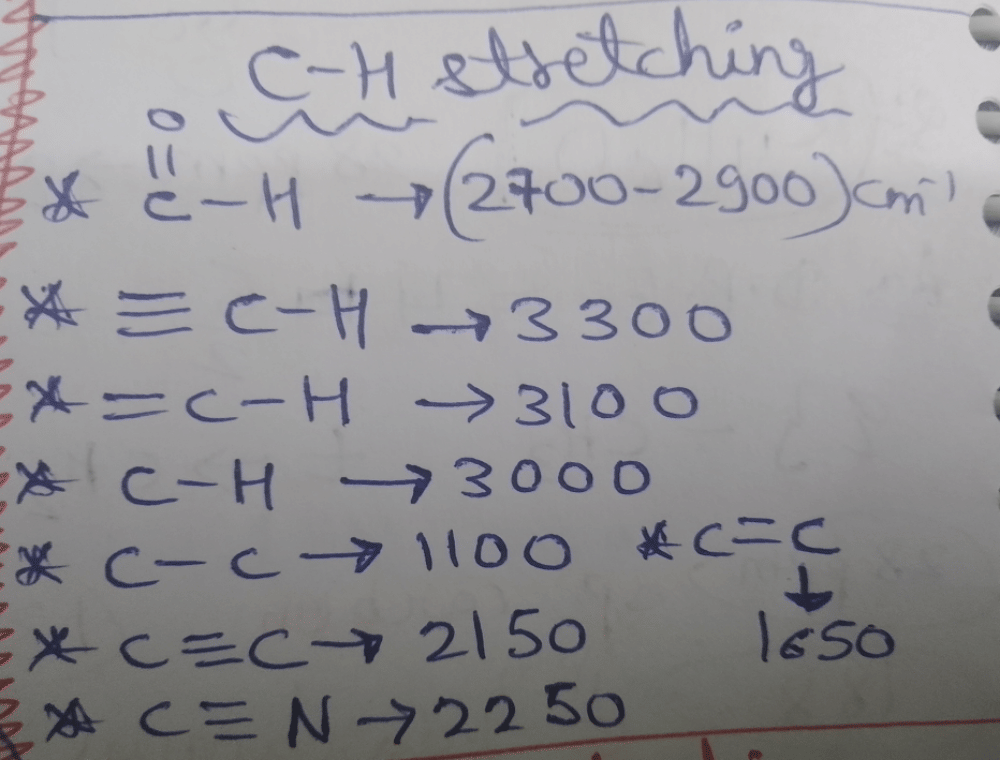 C-H stretching
O
||
* C-H → (2700-2900) cm⁻¹
* ≡ C-H → 3300
* = C-H → 3100
* C-H → 3000
* C-C → 1100 * C=C
↓
* C≡C → 2150 1650
* C≡N → 2250